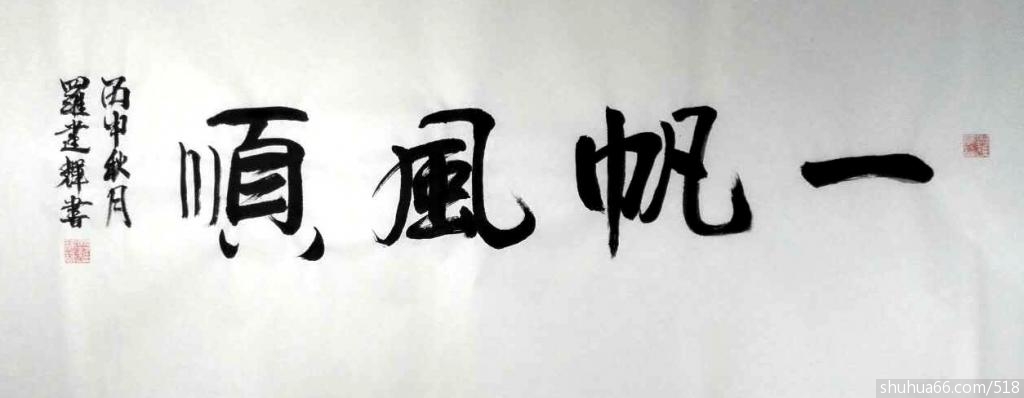 一帆風順
丙申秋月
羅建輝書
shuhua66.com/518